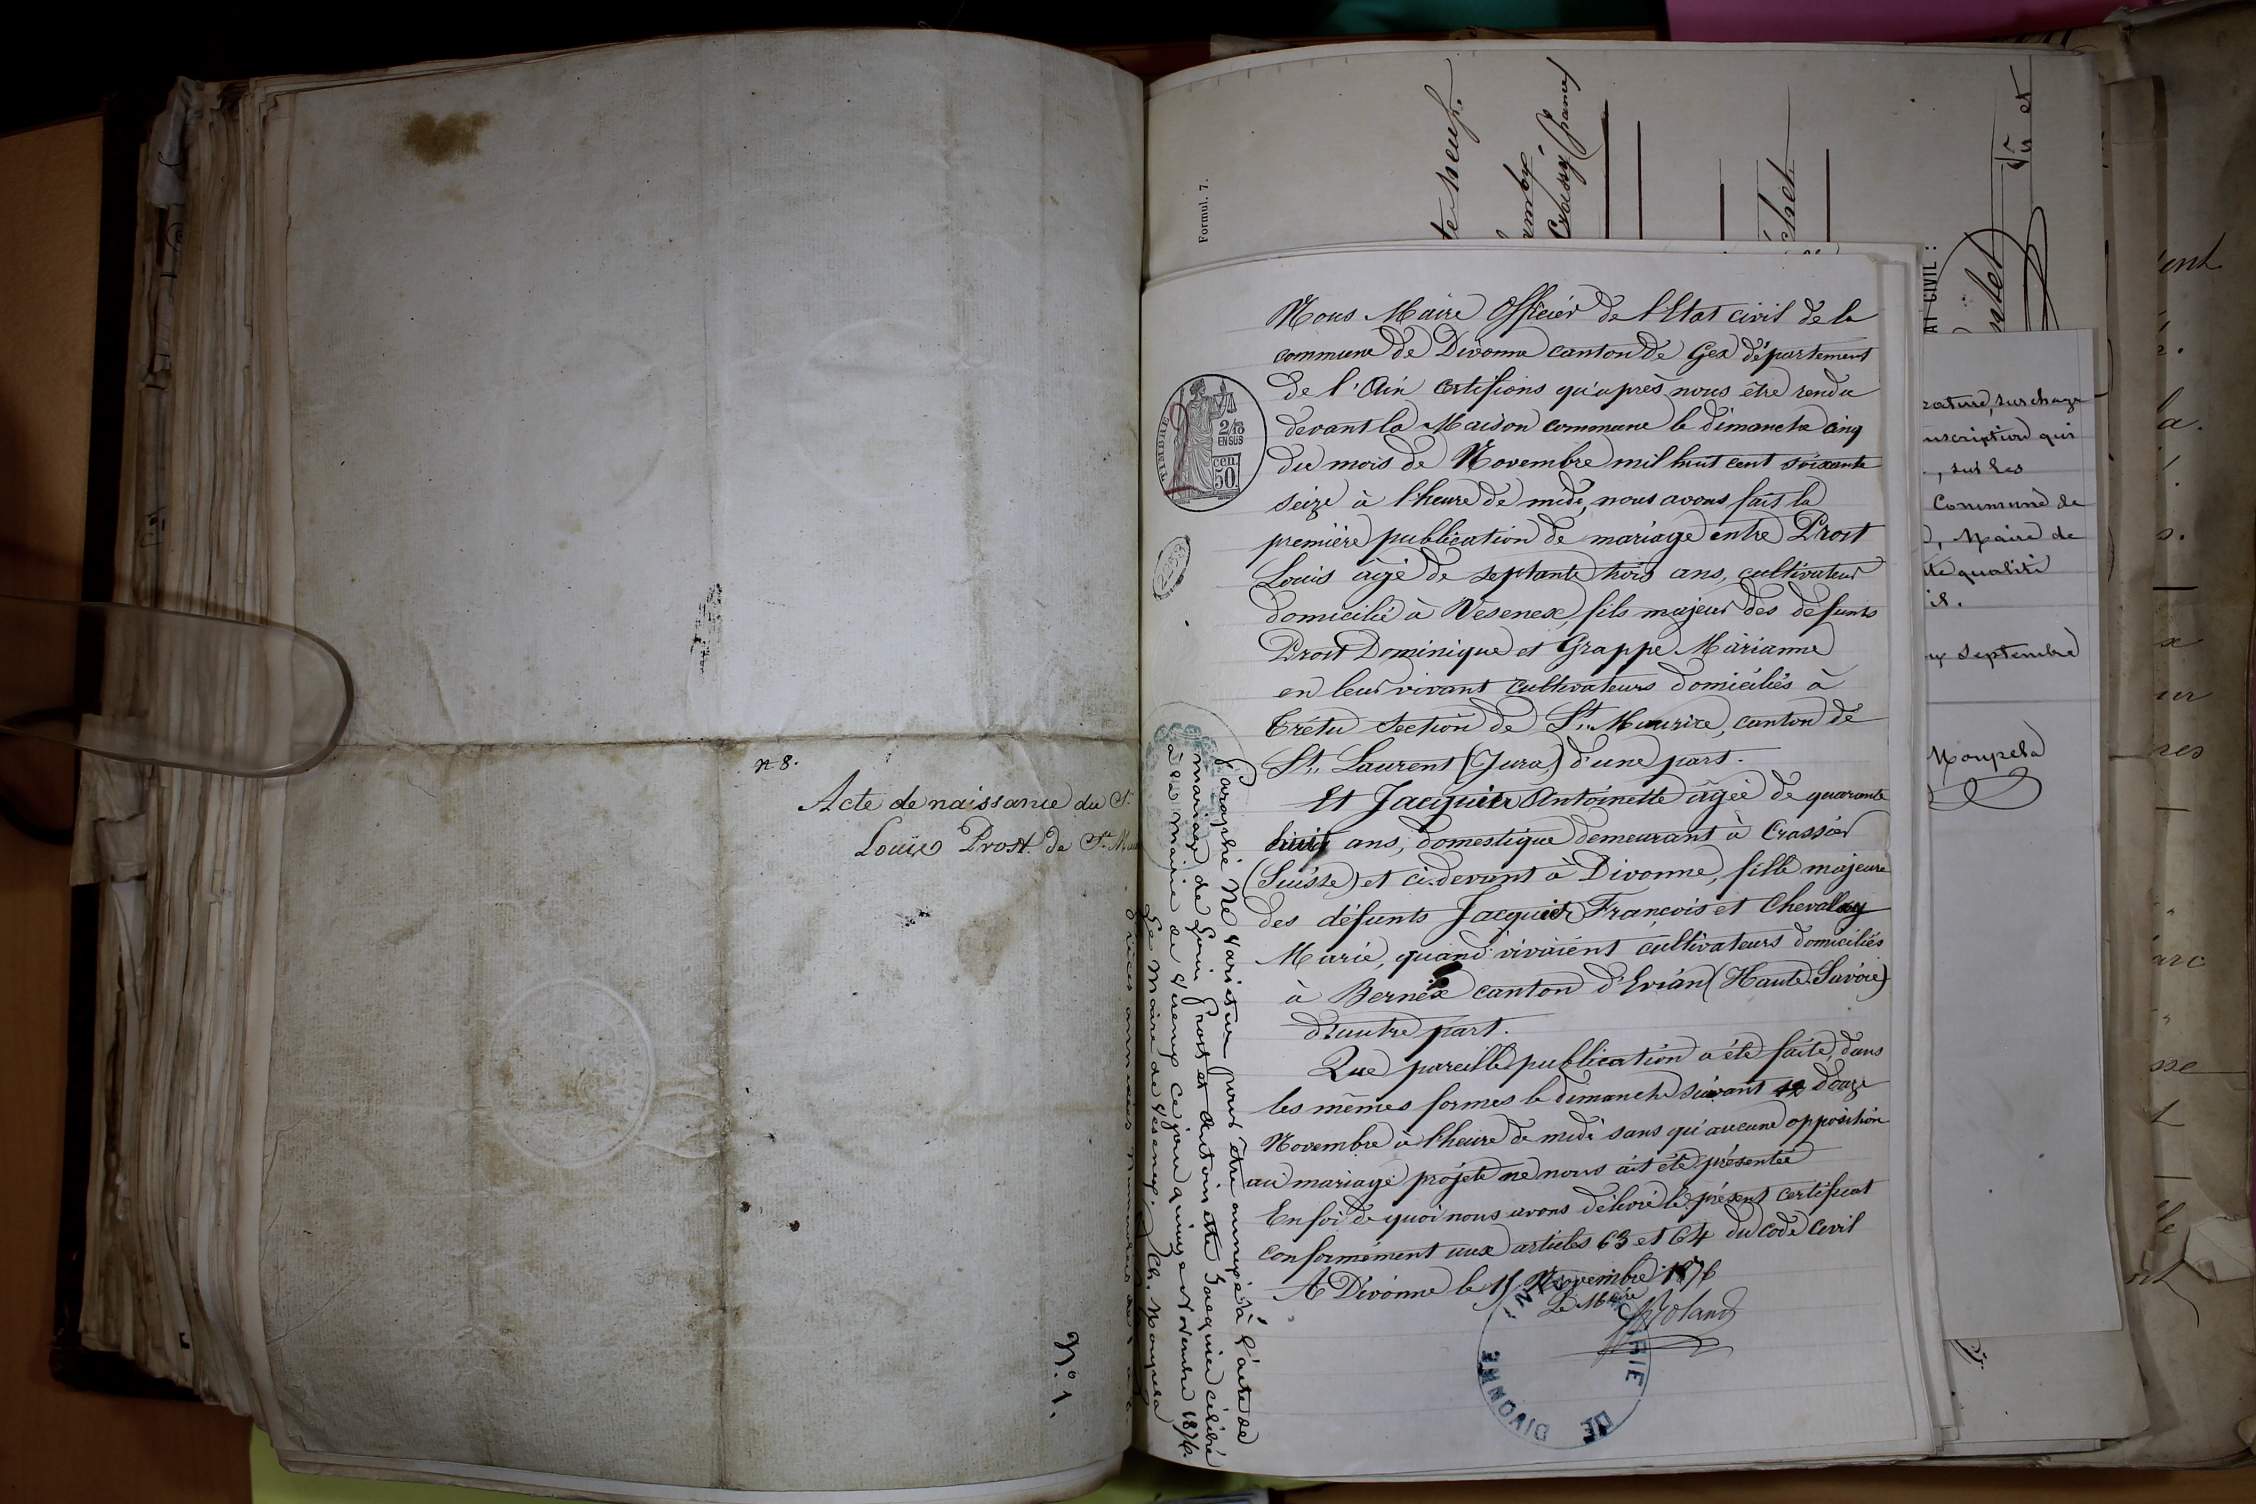 n 8.
Acte de naissance du Sr.
Louis Prost de St. M
N° 1.
Formul. 7.
Crassy
Vu et
TIMBRE
2/10
EN SUS
cen.
50
Nous Maire Officier de l'Etat civil de la
commune de Divonne canton de Gex département
de l'Ain certifions qu'après nous être rendu
devant la Maison commune le dimanche cinq
du mois de Novembre mil huit cent soixante
seize à l'heure de midi, nous avons fait la
première publication de mariage entre Prost
Louis âgé de septante trois ans, cultivateur
domicilié à Vésenex, fils majeur des défunts
Prost Dominique et Grappe Marianne
en leur vivant cultivateurs domiciliés à
Crétu section de St. Maurice, canton de
St. Laurent (Jura) d'une part.
Et Jacquier Antoinette âgée de quarante
huit ans, domestique demeurant à Crassier
(Suisse) et ci-devant à Divonne, fille majeure
des défunts Jacquier François et Chevallay
Marie, quand vivaient cultivateurs domiciliés
à Bernex canton d'Evian (Haute Savoie)
d'autre part.
Que pareille publication a été faite, dans
les mêmes formes le dimanche suivant douze
Novembre à l'heure de midi sans qu'aucune opposition
au mariage projeté ne nous ait été présentée
En foi de quoi nous avons délivré le présent certificat
conformément aux articles 63 et 64 du code civil
A Divonne le 15 Novembre 1876
Le Maire
Roland
MAIRIE DE DIVONNE
Paraphé Ne Varietur pour être annexé à l'acte de
mariage de Louis Prost et Antoinette Jacquier célébré
à la mairie de Vésenex ce jour quinze Novembre 1876
Le Maire de Vésenex. Ch. Moupela
pièces annexées
ÉTAT CIVIL :
rature, surcharge
nscription qui
, sur les
Commune de
, Maire de
te qualité
septembre
Moupela